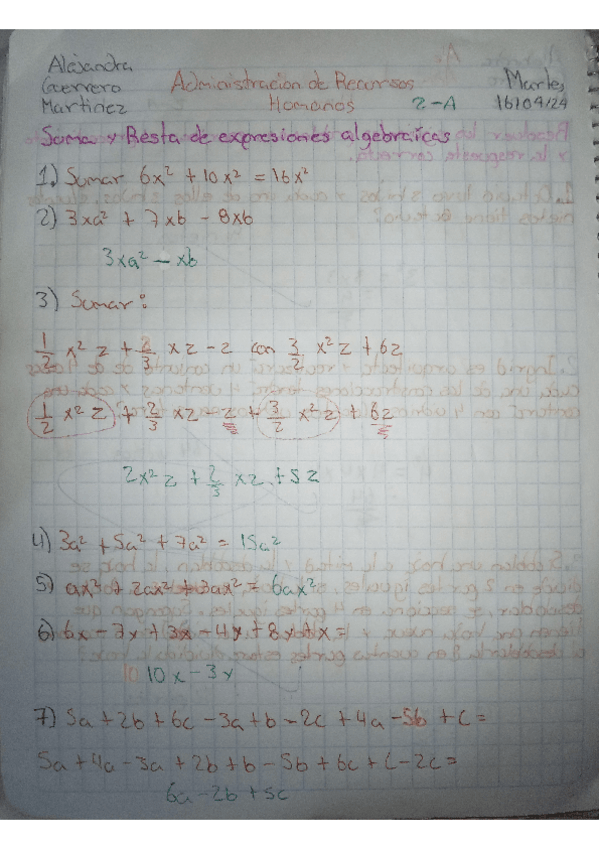 Alejandra
Guerrero
Martinez
Administracion de Recursos
Homanos
2-A
Martes
16/04/24
Suma y Resta de expresiones algebraicas
1) Sumar 6x² + 10x² = 16x²
2) 3xa² + 7xb - 8xb
3xa² - xb
3) Sumar:
1/2 x² z + 2/3 xz - z con 3/2 x² z + 6z
1/2 x² z + 2/3 xz - z + 3/2 x² z + 6z
2x² z + 2/3 xz + 5z
4) 3a² + 5a² + 7a² = 15a²
5) ax² + 2ax² + 3ax² = 6ax²
6) 6x - 7y + 3x - 4y + 8y
10x - 3y
7) 5a + 2b + 6c - 3a + b - 2c + 4a - 5b + c =
5a + 4a - 3a + 2b + b - 5b + 6c + c - 2c =
6a - 2b + 5c